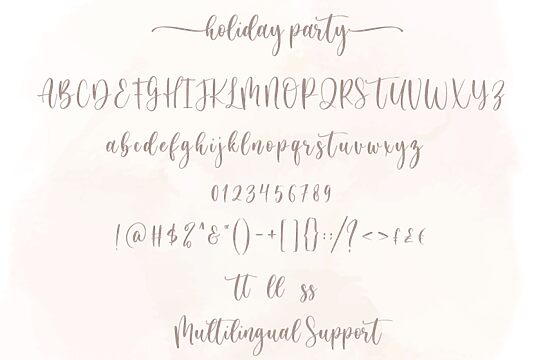 holiday party
ABCDEFGHIJKLMNOPQRSTUVWXYZ
abcdefghijklnopqrstuvwxyz
0123456789
!@#$%^&*()-+[]{}:;/?<>f£€
tt ll ss
Multilingual Support